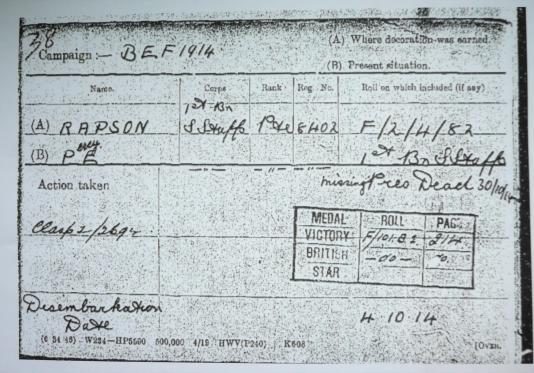 38
Campaign :— B E F 1914
(A) Where decoration was earned.
(B) Present situation.
Name. Corps Rank Reg. No. Roll on which included (if any)
1st Bn
(A) RAPSON S Staffs Pte 8402 F/2/4/82
(B) Percy E 1st Bn S Staffs
Action taken missing Pres Dead 30/10/14
MEDAL ROLL PAGE
Clasp 2/269
VICTORY F/101.B.2. 214
BRITISH -do- do
STAR
Disembarkation Date 4 10 14
(6 34 46) W234—HP5590 500,000 4/19 HWV(P240) K608 [OVER.